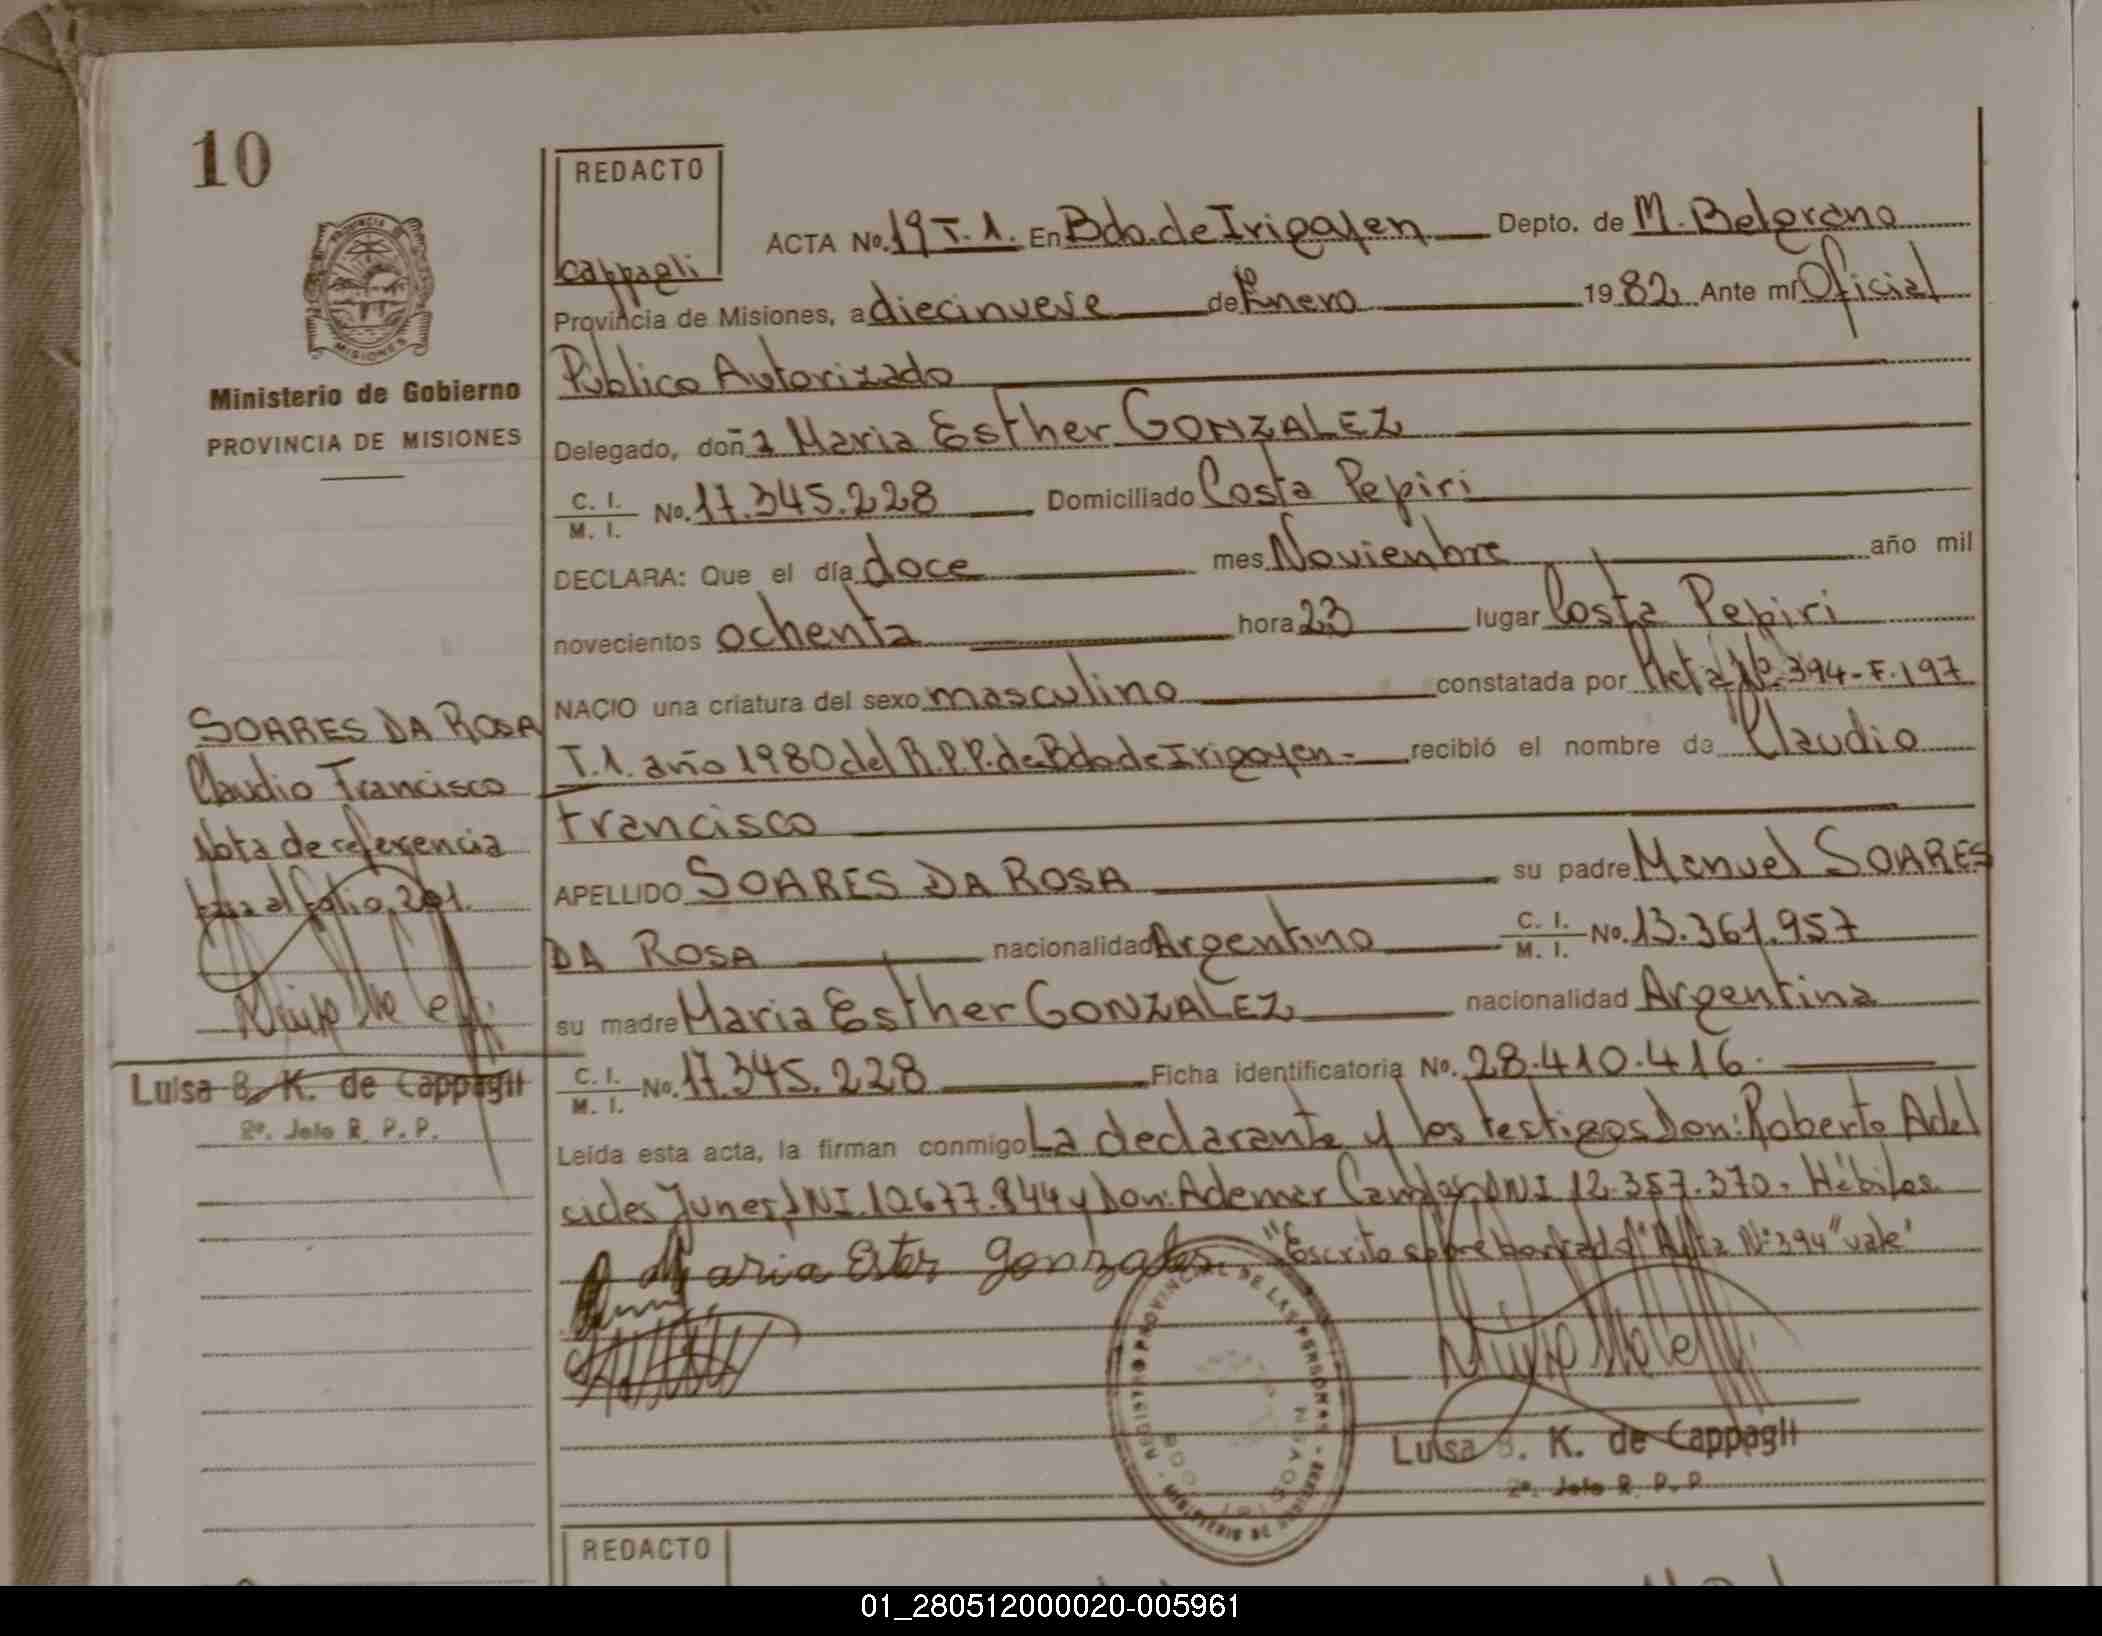 10
REDACTO
Cappagli
ACTA No. 19 T. 1. En Bdo. de Irigoyen Depto. de M. Belgrano
Provincia de Misiones, a diecinueve de Enero 1982 Ante mí Oficial
Público Autorizado
Delegado, doña Maria Esther GONZALEZ
C. I.
M. I. No. 17.345.228 Domiciliado Costa Pepiri
DECLARA: Que el día doce mes Novienbre año mil
novecientos ochenta hora 23 lugar Costa Pepiri
NACIO una criatura del sexo masculino constatada por Acta Nº 394-F.197
T.1. año 1980 del R.P.P. de Bdo de Irigoyen- recibió el nombre de Claudio
Francisco
APELLIDO SOARES DA ROSA su padre Manuel SOARES
DA ROSA nacionalidad Argentino C. I. M. I. No. 13.361.957
su madre Maria Esther GONZALEZ nacionalidad Argentina
C. I.
M. I. No. 17.345.228 Ficha identificatoria No. 28.410.416.
Leída esta acta, la firman conmigo La declarante y los testigos Don: Roberto Adel
cides Junes, DNI. 12.677.844 y Don: Ademar DNI 12.357.370. Hábiles.
Maria Ester Gonzales "Escrito sobre borrado" Acta Nº 394 "vale"
REGISTRO PROVINCIAL DE LAS PERSONAS
MISIONES
Luisa B. K. de Cappagli
2º. Jefe R. P. P.
PROVINCIA DE
MISIONES
Ministerio de Gobierno
PROVINCIA DE MISIONES
SOARES DA ROSA
Claudio Francisco
Nota de referencia
pasa al folio 201.
Luisa B. K. de Cappagli
2º. Jefe R. P. P.
REDACTO
01_280512000020-005961